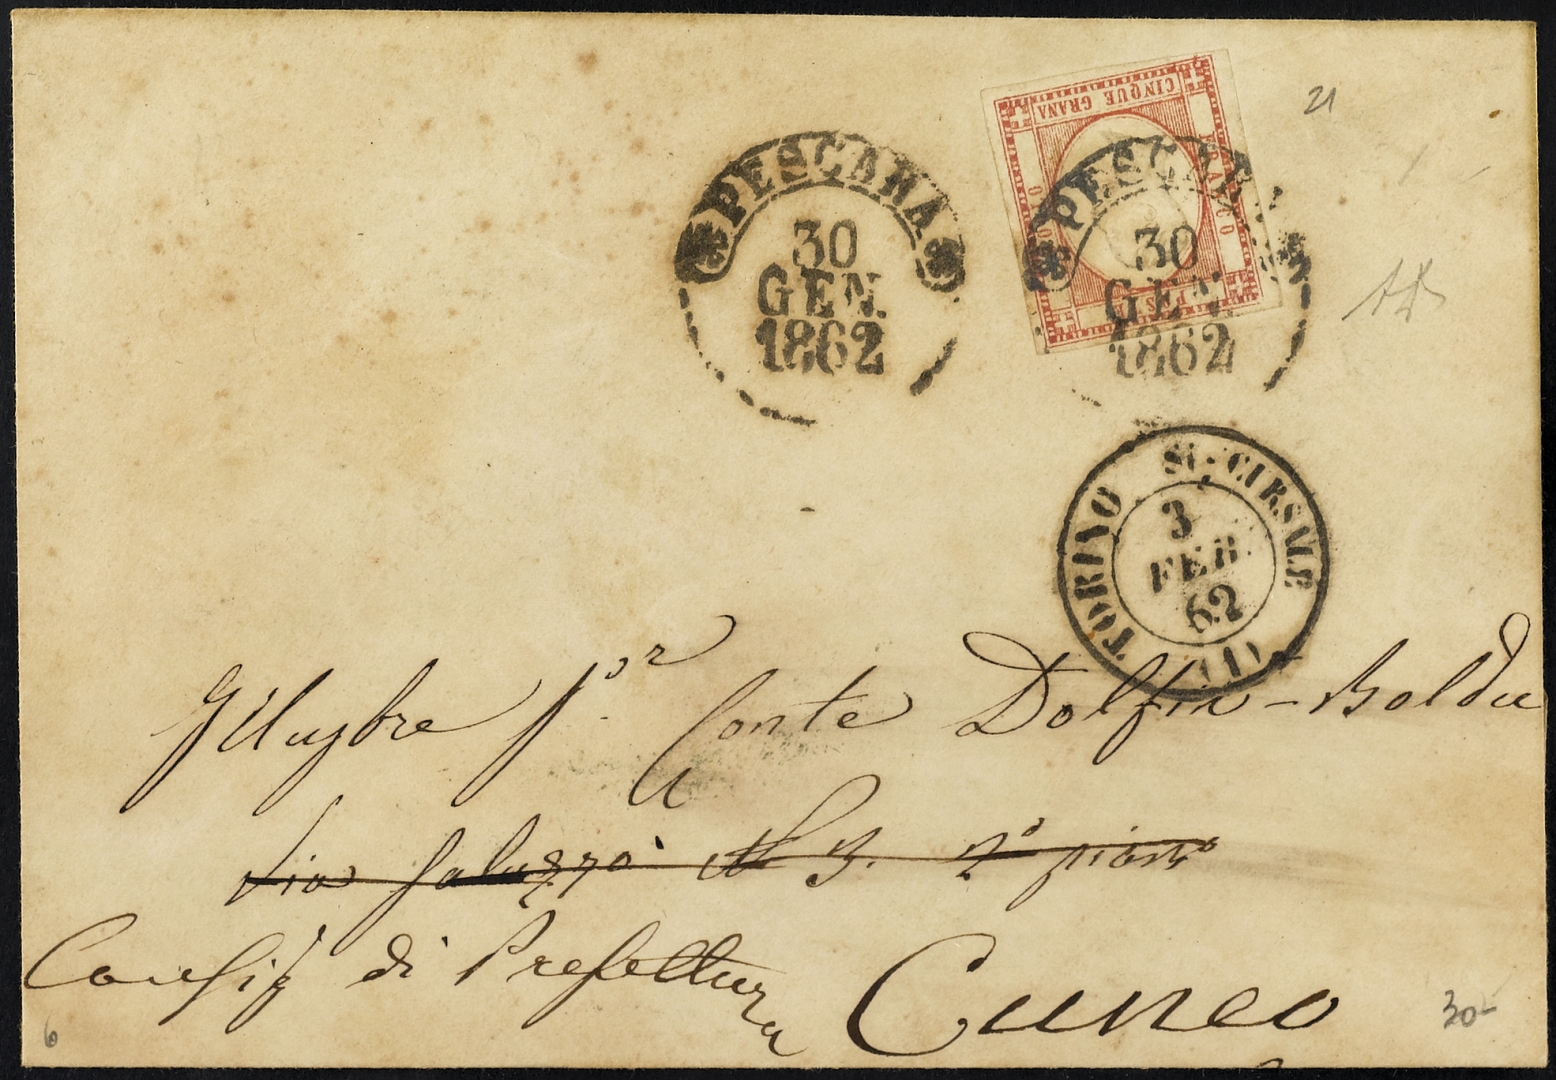 CINQUE GRANA
FRANCO
PESCARA
30
GEN.
1862
PESCARA
30
GEN.
1862
21
TORINO SUCCURSALE
3
FEB.
62
(1)
Conte Dolfin-Boldu
via Saluzzo N 3. 2° piano
Consig di Prefettura Cuneo
6
30-